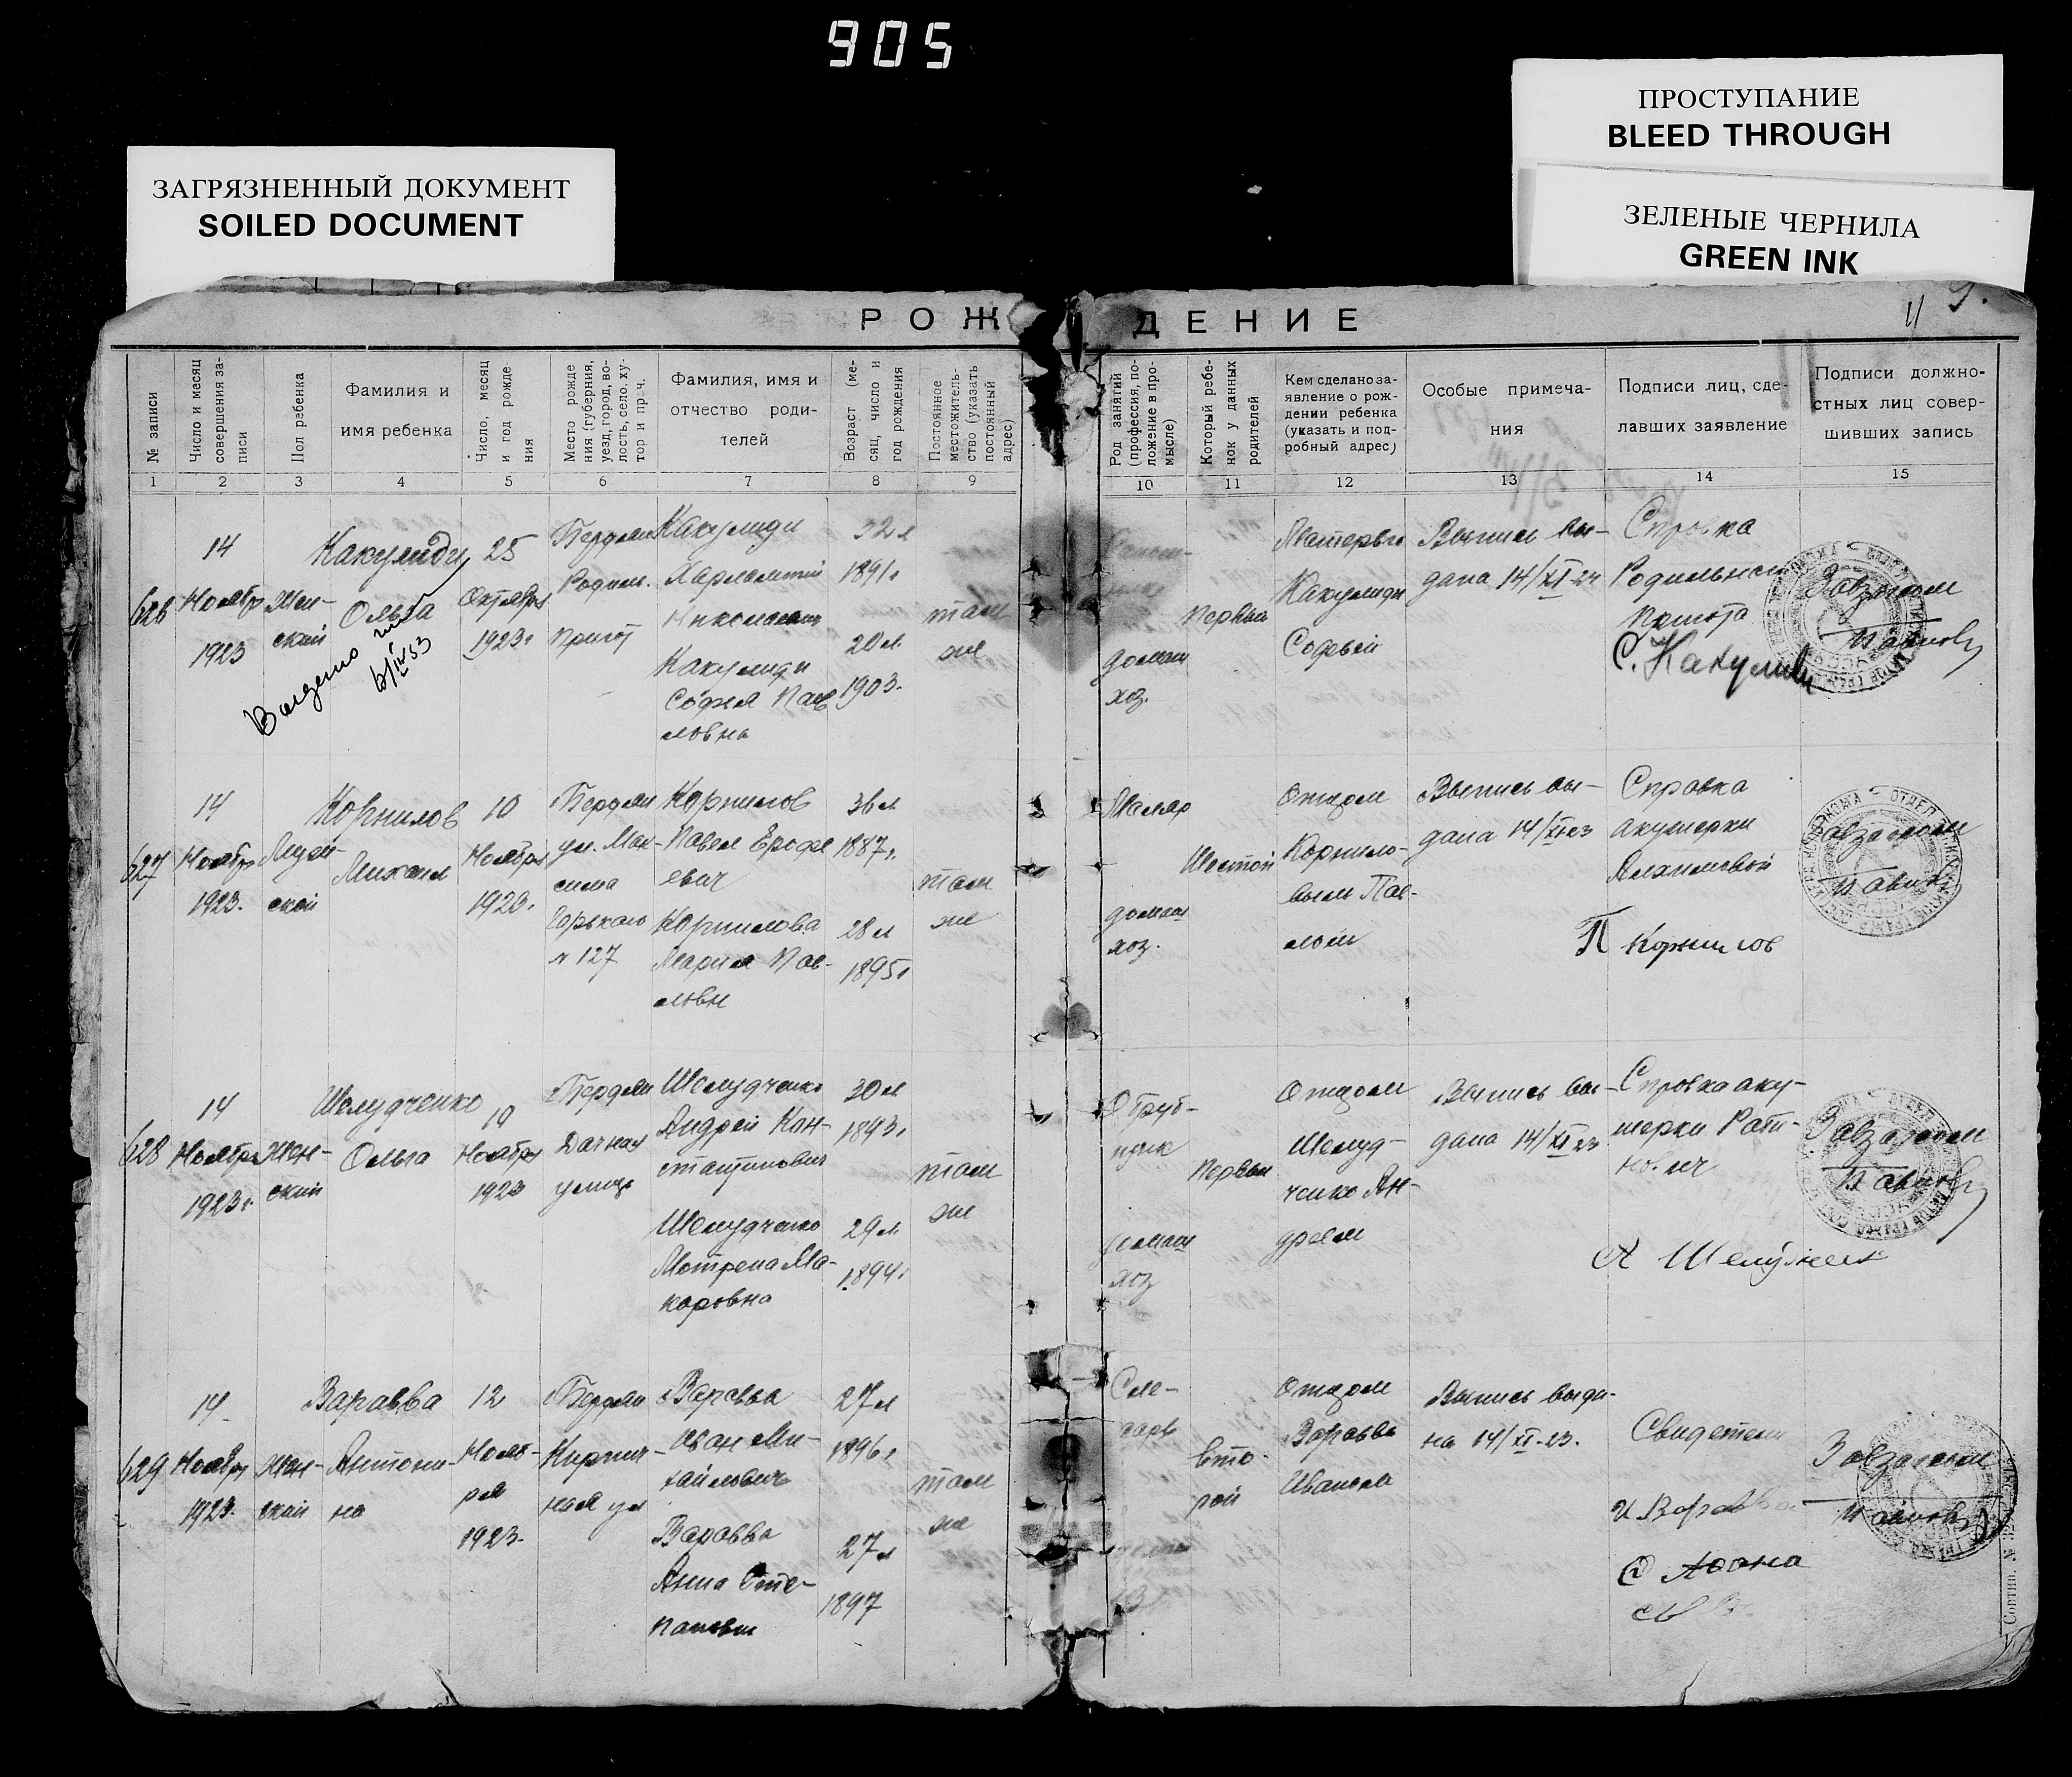 905
ПРОСТУПАНИЕ
BLEED THROUGH
ЗАГРЯЗНЕННЫЙ ДОКУМЕНТ
SOILED DOCUMENT
ЗЕЛЕНЫЕ ЧЕРНИЛА
GREEN INK
РОЖДЕНИЕ
№ записи
Число и месяц
совершения за-
писи
Пол ребенка
Фамилия и
имя ребенка
Число, месяц
и год рожде-
ния
Место рожде
ния (губерния,
уезд, город, во-
лость, село, ху-
тор и проч.
Фамилия, имя и
отчество роди-
телей
Возраст (ме-
сяц, число и
год рождения
Постоянное
местожитель-
ство (указать
постоянный
адрес)
Род занятий
(профессия, по-
ложение в про-
мысле)
Который ребе-
нок у данных
родителей
Кем сделано за-
явление о рож-
дении ребенка
(указать и под-
робный адрес)
Особые примеча-
ния
Подписи лиц, сде-
лавших заявление
Подписи должно-
стных лиц совер-
шивших запись
1 2 3 4 5 6 7 8 9 10 11 12 13 14 15
626
14
Ноябр
1923
Жен-
ский
Какулиди
Ольга
Выдано
25
Октября
1923г
Бердян
Родиль.
Приют
Какулиди
Харлампий
Николаевич
Какулиди
Софья Пав
ловна
32 л
1891г
20 л
1903.
там
же
домаш
хоз.
Первый
Матерью
Какулиди
Софьей
Выпись вы-
дана 14/XI-23
Справка
Родильного
Приюта
С. Какулиди
Завзагсом
627
14
Ноябр
1923.
Муж-
ской
Корнилов
Михаил
10
Ноября
1923г
Бердян
ул. Мак-
сима
Горького
№ 127
Корнилов
Павел Ерофе
евич
Корнилова
Мария Пав-
ловн
36 л
1887г
28 л
1895г
там
же
Маляр
домаш
хоз.
Шестой
Отцом
Корнило-
вым Пав-
лом
Выпись вы-
дана 14/XI-23
Справка
акушерки
П Корнилов
Завзагсом
628
14
Ноября
1923г.
Жен-
ский
Шелудченко
Ольга
10
Ноября
1923
Бердян
Дачная
улица
Шелудченко
Андрей Кон-
стантинович
Шелудченко
Мотрена Ма-
каровна
30 л
1893г
29 л
1894г
там
же
домаш
хоз
Первый
Отцом
Шелуд-
ченко Ан-
дреем
Выпись вы-
дана 14/XI-23
Справка аку-
шерки
Завзагсом
629
14
Ноябр
1923.
Жен-
ский
Варавва
Антони-
на
12
Нояб-
ря
1923.
Бердян
Кирпич-
ная ул
Варавва
Иван Ми-
хайлович
Варавва
Анна Сте-
пановн
27 л
1896г
27 л
1897
там
же
Сле-
сарь
Вто-
рой
Отцом
Варавва
Иваном
Выпись выда-
на 14/XI-23.
Свидетели
И Варавва
Завзагсом